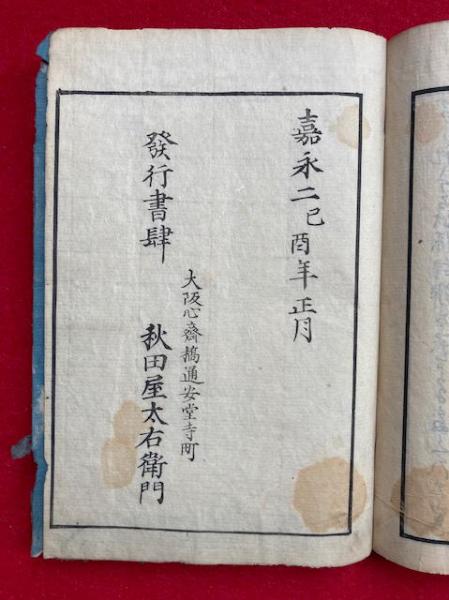 嘉永二己酉年正月
發行書肆
大阪心齋橋通安堂寺町
秋田屋太右衛門